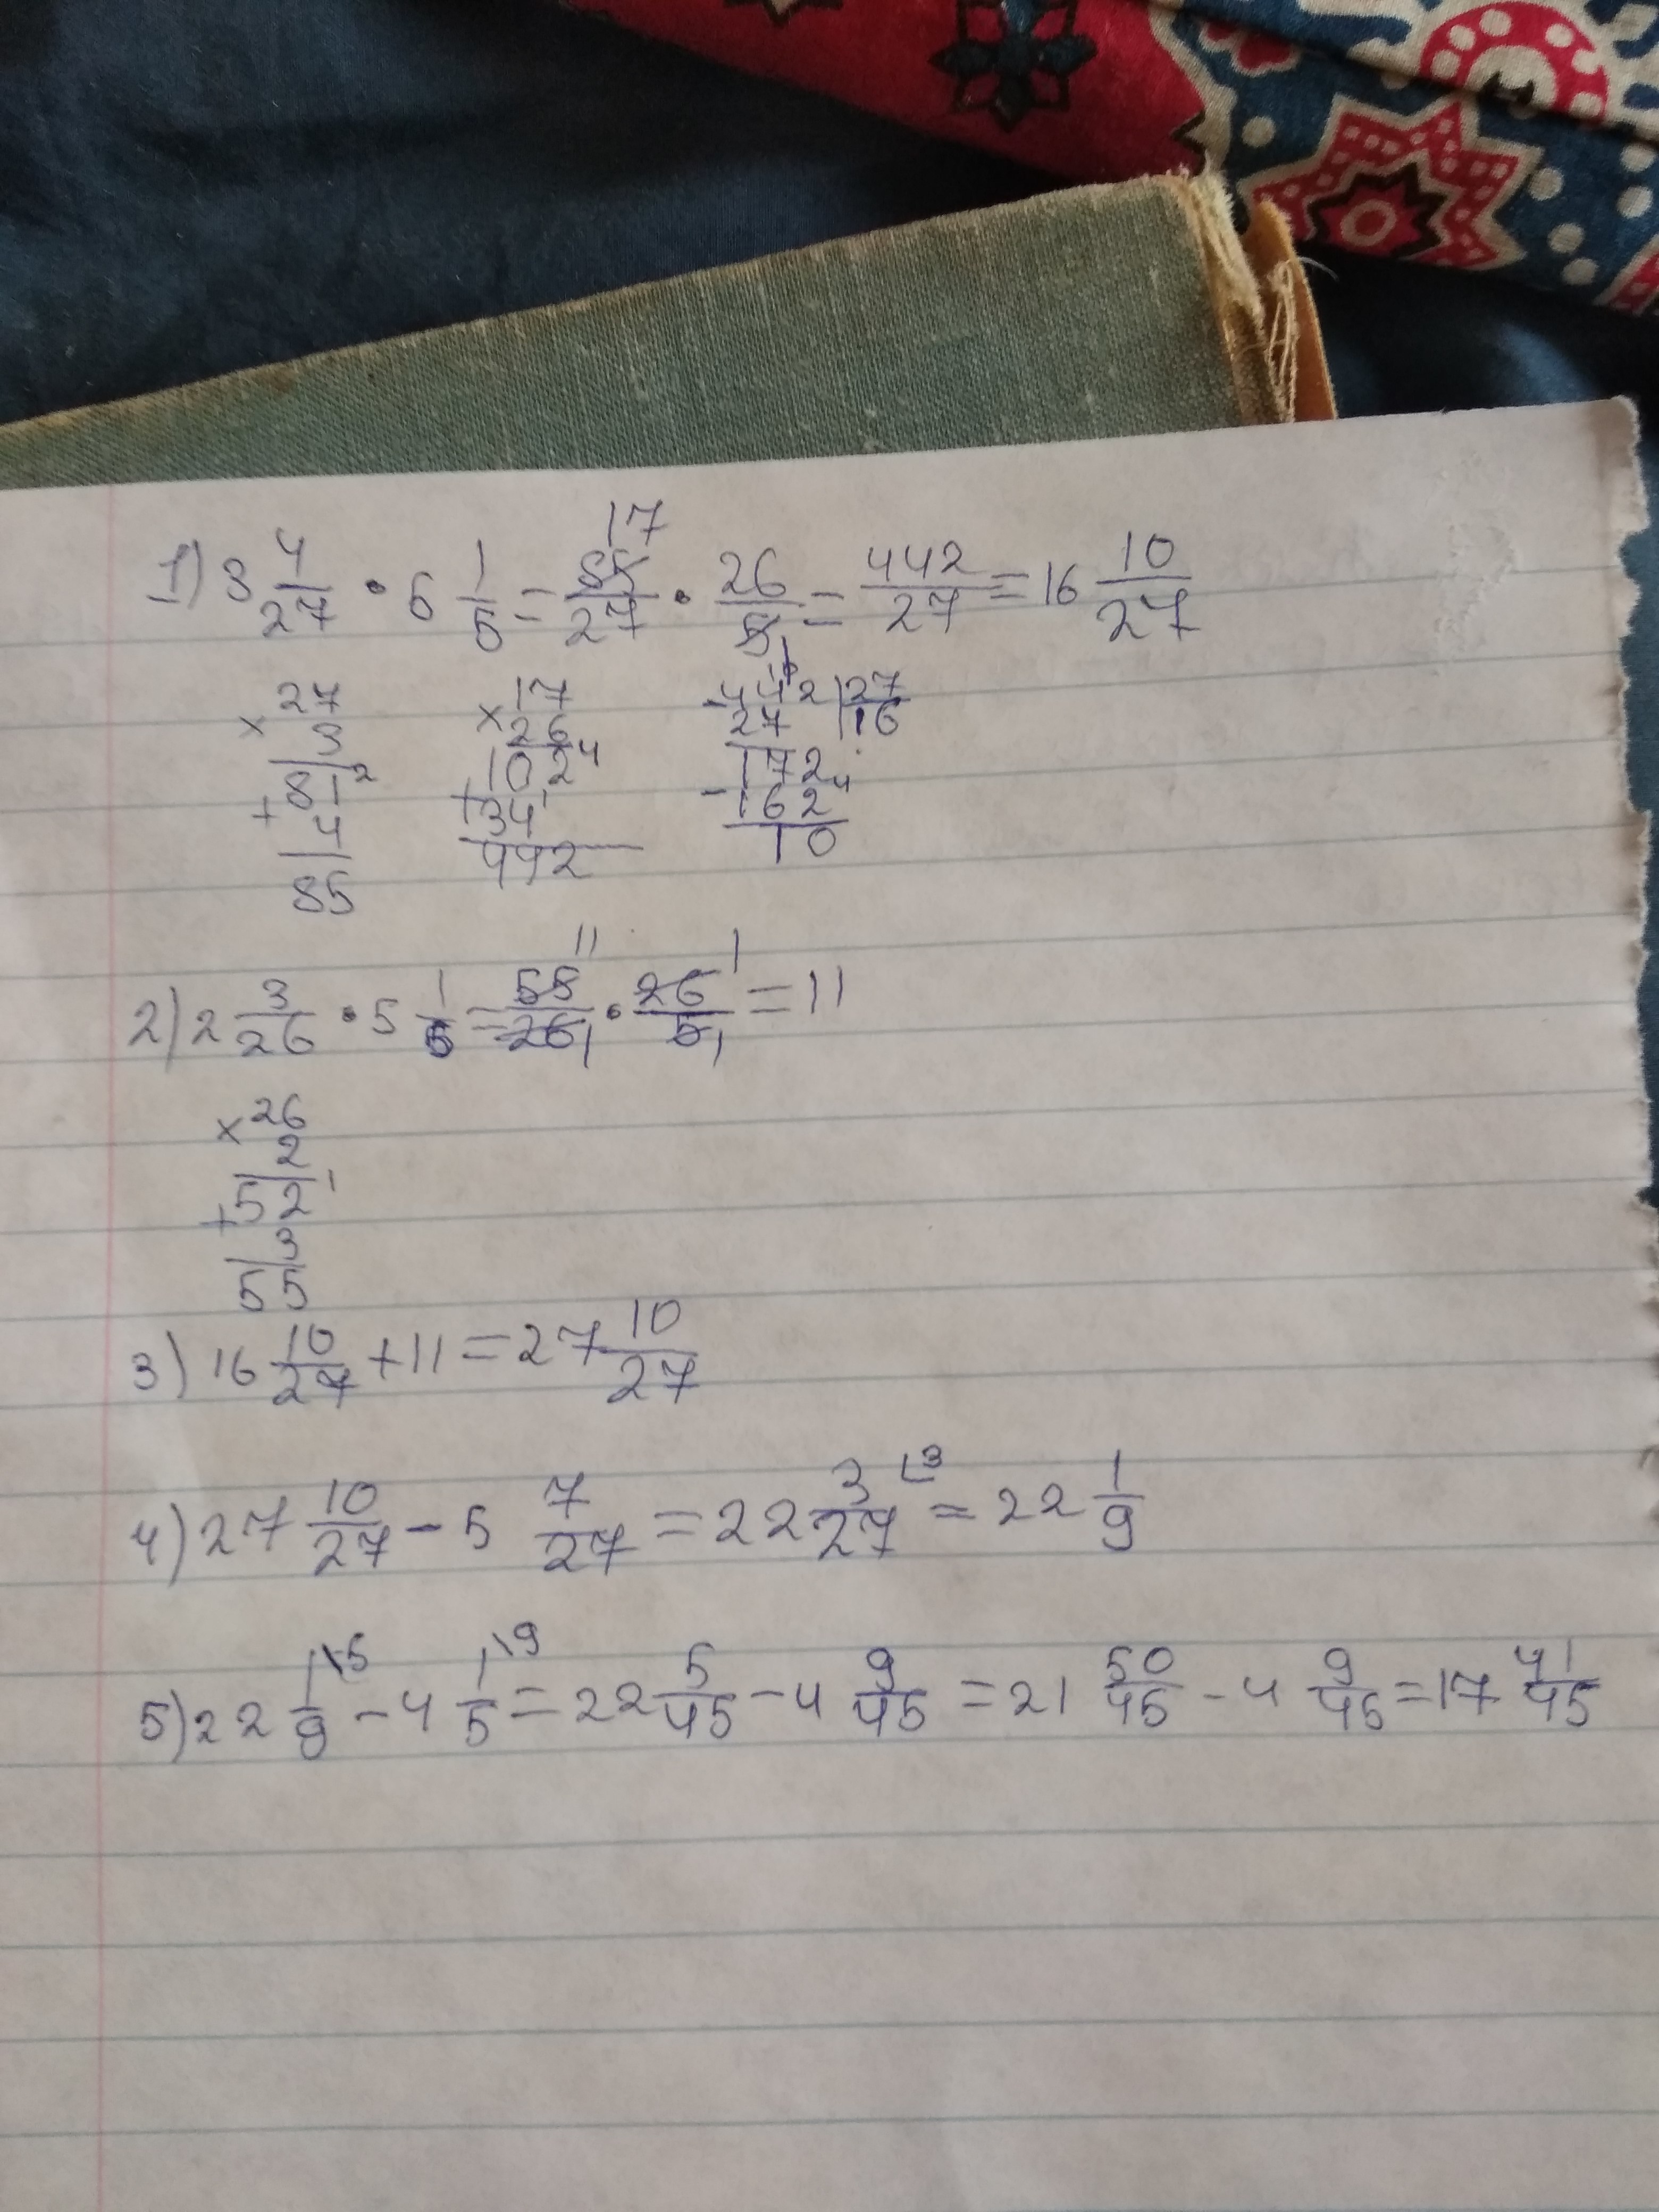 1) 3 4/27 · 5 1/5 = 85/27 · 26/5 = 442/27 = 16 10/27
17
1
× 27
3
81 2
+ 4
85
× 17
26
102 4
+ 34 1
442
10
- 442 | 27
27 | 16
172
- 162 4
10
2) 2 3/26 · 5 1/5 = 55/26 · 26/5 = 11
11 1
1 1
× 26
2
+ 52 1
3
55
3) 16 10/27 + 11 = 27 10/27
4) 27 10/27 - 5 7/27 = 22 3/27 = 22 1/9
3
5) 22 1/9 - 4 1/5 = 22 5/45 - 4 9/45 = 21 50/45 - 4 9/45 = 17 41/45
\5 \9